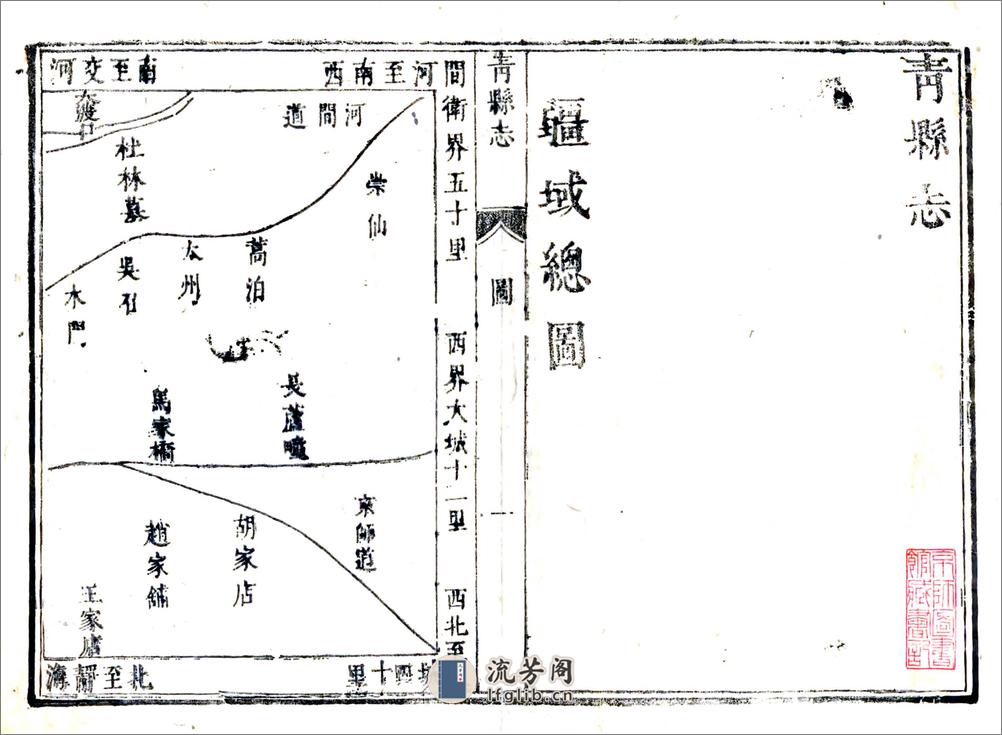 青縣志
疆域總圖
京師圖書館藏書記
青縣志
圖
間衛界五十里
西界大城十二里
西北至
河至南西
南至交河
河間道
崇仙
杜林墓
蒿泊
木門
長蘆
馬家橋
京師道
胡家店
趙家舖
王家店
城四十里
北至靜海
流芳阁
lfglib.cn